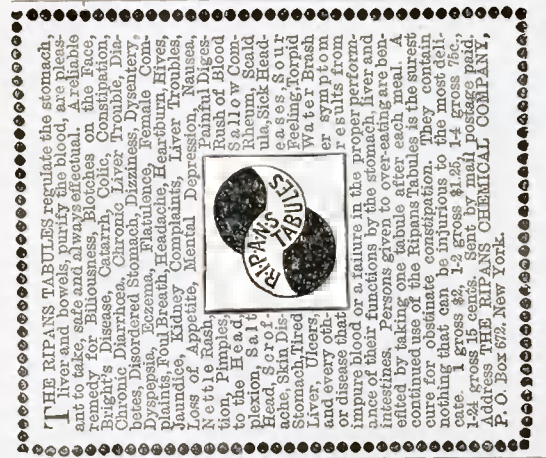 THE RIPANS TABULES regulate the stomach,
liver and bowels, purify the blood, are pleas-
ant to take, safe and always effectual. A reliable
remedy for Biliousness, Blotches on the Face,
Bright's Disease, Catarrh, Colic, Constipation,
Chronic Diarrhœa, Chronic Liver Trouble, Dia-
betes, Disordered Stomach, Dizziness, Dysentery,
Dyspepsia, Eczema, Flatulence, Female Com-
plaints, Foul Breath, Headache, Heartburn, Hives,
Jaundice, Kidney Complaints, Liver Troubles,
Loss of Appetite, Mental Depression, Nausea,
Nettle Rash
tion, Pimples,
to the Head,
plexion, Salt
Head, Scrof
ache, Skin Dis-
Stomach, Tired
Liver, Ulcers,
and every oth-
or disease that
RIPANS
TABULES
Painful Diges-
Rush of Blood
Sallow Com-
Rheum, Scald
ula, Sick Head-
eases, Sour
Feeling, Torpid
Water Brash
er symptom
results from
impure blood or a failure in the proper perform-
ance of their functions by the stomach, liver and
intestines. Persons given to over-eating are ben-
efited by taking one tabule after each meal. A
continued use of the Ripans Tabules is the surest
cure for obstinate constipation. They contain
nothing that can be injurious to the most deli-
cate. 1 gross $2, 1-2 gross $1.25, 1-4 gross 75c.,
1-24 gross 15 cents. Sent by mail postage paid.
Address THE RIPANS CHEMICAL COMPANY,
P. O. Box 672, New York.